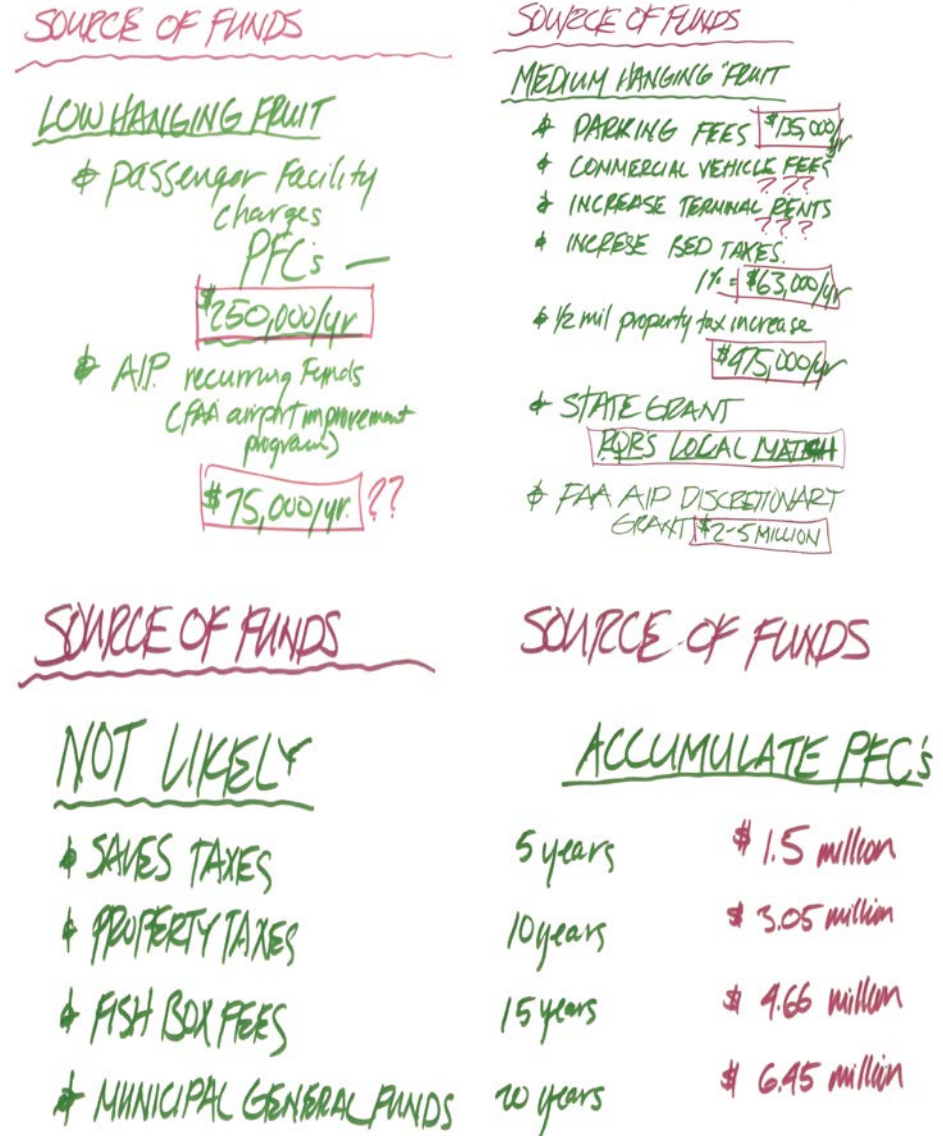 SOURCE OF FUNDS
LOW HANGING FRUIT
$ Passenger Facility
Charges
PFC's —
$250,000/yr
$ A.I.P. recurring Funds
(FAA airport improvement
program)
$75,000/yr. ??
SOURCE OF FUNDS
MEDIUM HANGING FRUIT
$ PARKING FEES $135,000/
yr
$ COMMERCIAL VEHICLE FEES
???
$ INCREASE TERMINAL RENTS
???
$ INCRESE BED TAXES.
1% = $63,000/yr
$ 1/2 mil property tax increase
$475,000/yr
$ STATE GRANT
LOCAL MATCH
$ FAA AIP DISCRETIONARY
GRANT $2-5 MILLION
SOURCE OF FUNDS
NOT LIKELY
$ SALES TAXES
$ PROPERTY TAXES
$ FISH BOX FEES
$ MUNICIPAL GENERAL FUNDS
SOURCE OF FUNDS
ACCUMULATE PFC's
5 years $ 1.5 million
10 years $ 3.05 million
15 years $ 4.66 million
20 years $ 6.45 million